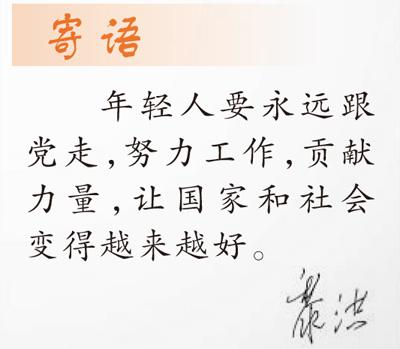 寄语
年轻人要永远跟
党走,努力工作,贡献
力量,让国家和社会
变得越来越好。